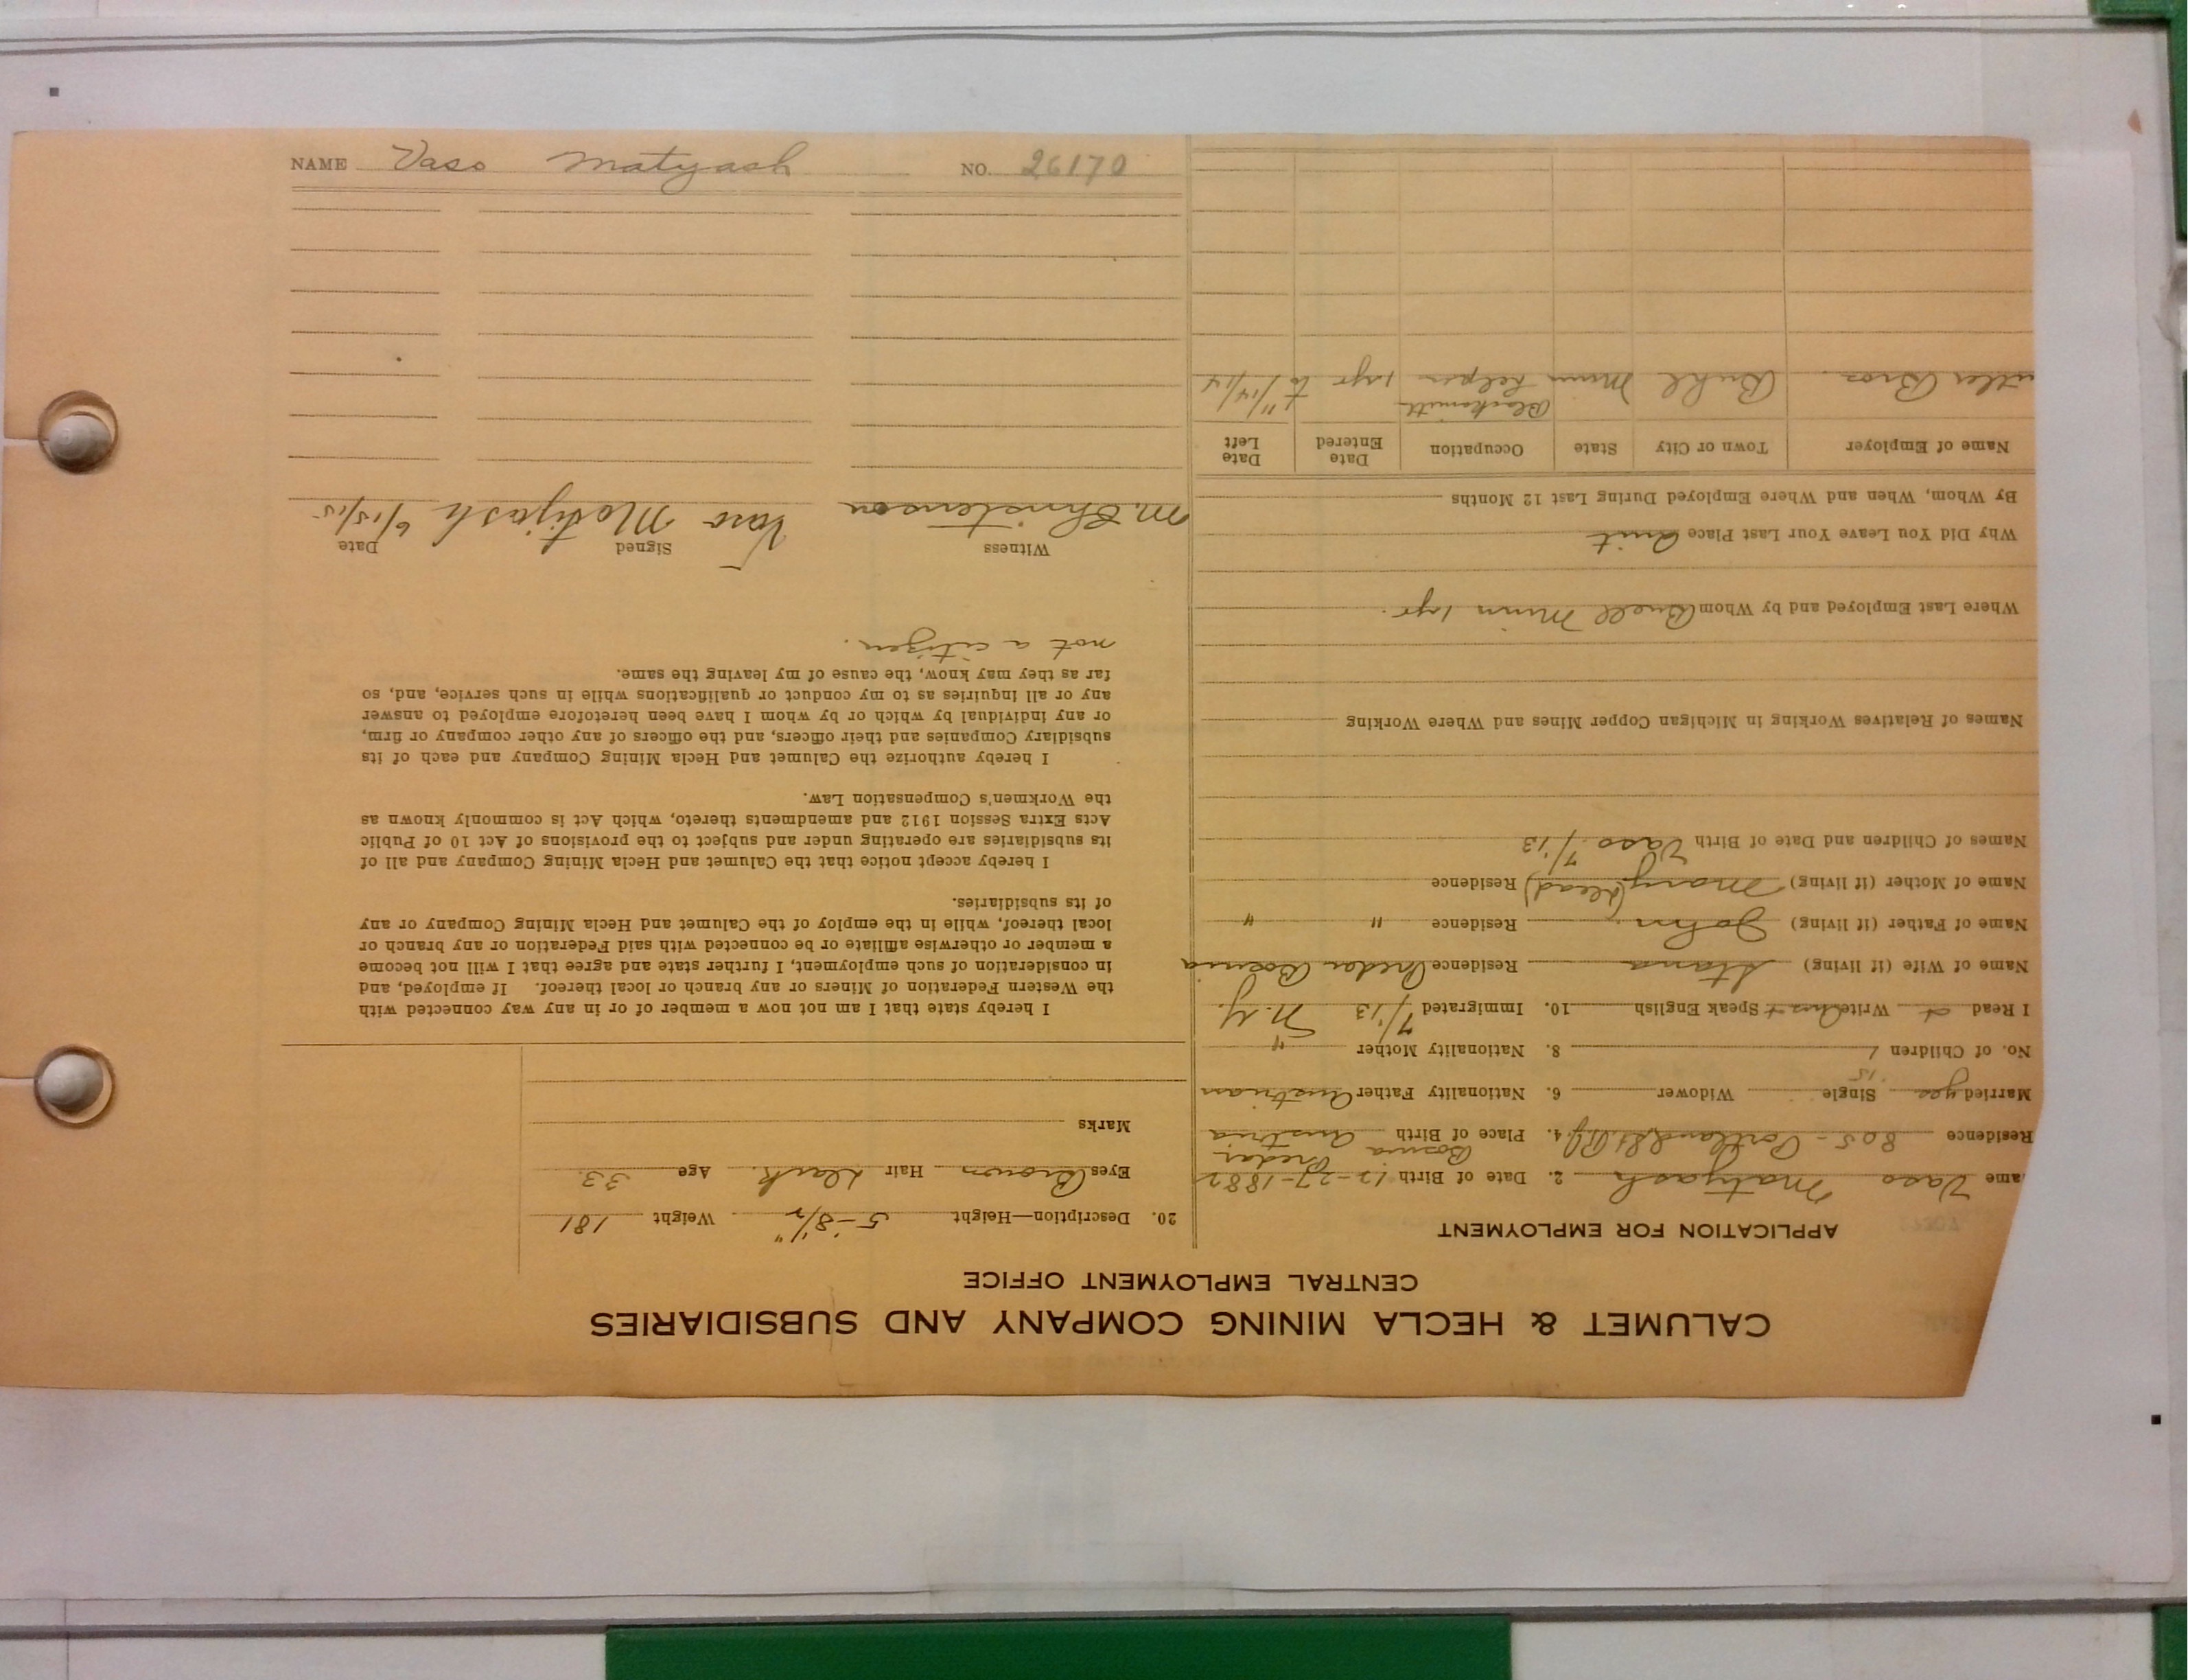 NAME Vaso Matyash NO. 26170
CALUMET & HECLA MINING COMPANY AND SUBSIDIARIES
CENTRAL EMPLOYMENT OFFICE
APPLICATION FOR EMPLOYMENT
ame Vaso Matyash 2. Date of Birth 12-27-188
Residence 805- Portland St. 4. Place of Birth Bosnia Austria
Married yes Single Widower 6. Nationality Father Austrian
15
No. of Children 1 8. Nationality Mother "
I Read Write Speak English 10. Immigrated 7/'13 N.Y.
Name of Wife (if living) Stana Residence Bosnia
Name of Father (if living) John Residence " "
Name of Mother (if living) Mary (dead) Residence
Names of Children and Date of Birth Vaso 7/13
Names of Relatives Working in Michigan Copper Mines and Where Working
Where Last Employed and by Whom Buell Minn 1 yr.
Why Did You Leave Your Last Place Quit
By Whom, When and Where Employed During Last 12 Months
Name of Employer Town or City State Occupation Date Entered Date Left
utler Bros. Buhl Minn Blacksmith helper 1 yr to 11/14/14
20. Description—Height 5-8 1/2" Weight 181
Eyes Brown Hair dark. Age 33.
Marks
I hereby state that I am not now a member of or in any way connected with
the Western Federation of Miners or any branch or local thereof. If employed, and
in consideration of such employment, I further state and agree that I will not become
a member or otherwise affiliate or be connected with said Federation or any branch or
local thereof, while in the employ of the Calumet and Hecla Mining Company or any
of its subsidiaries.
I hereby accept notice that the Calumet and Hecla Mining Company and all of
its subsidiaries are operating under and subject to the provisions of Act 10 of Public
Acts Extra Session 1912 and amendments thereto, which Act is commonly known as
the Workmen's Compensation Law.
I hereby authorize the Calumet and Hecla Mining Company and each of its
subsidiary Companies and their officers, and the officers of any other company or firm,
or any individual by which or by whom I have been heretofore employed to answer
any or all inquiries as to my conduct or qualifications while in such service, and, so
far as they may know, the cause of my leaving the same.
not a citizen.
Witness Signed Date
M. Christenson Vaso Matijash 6/15/15